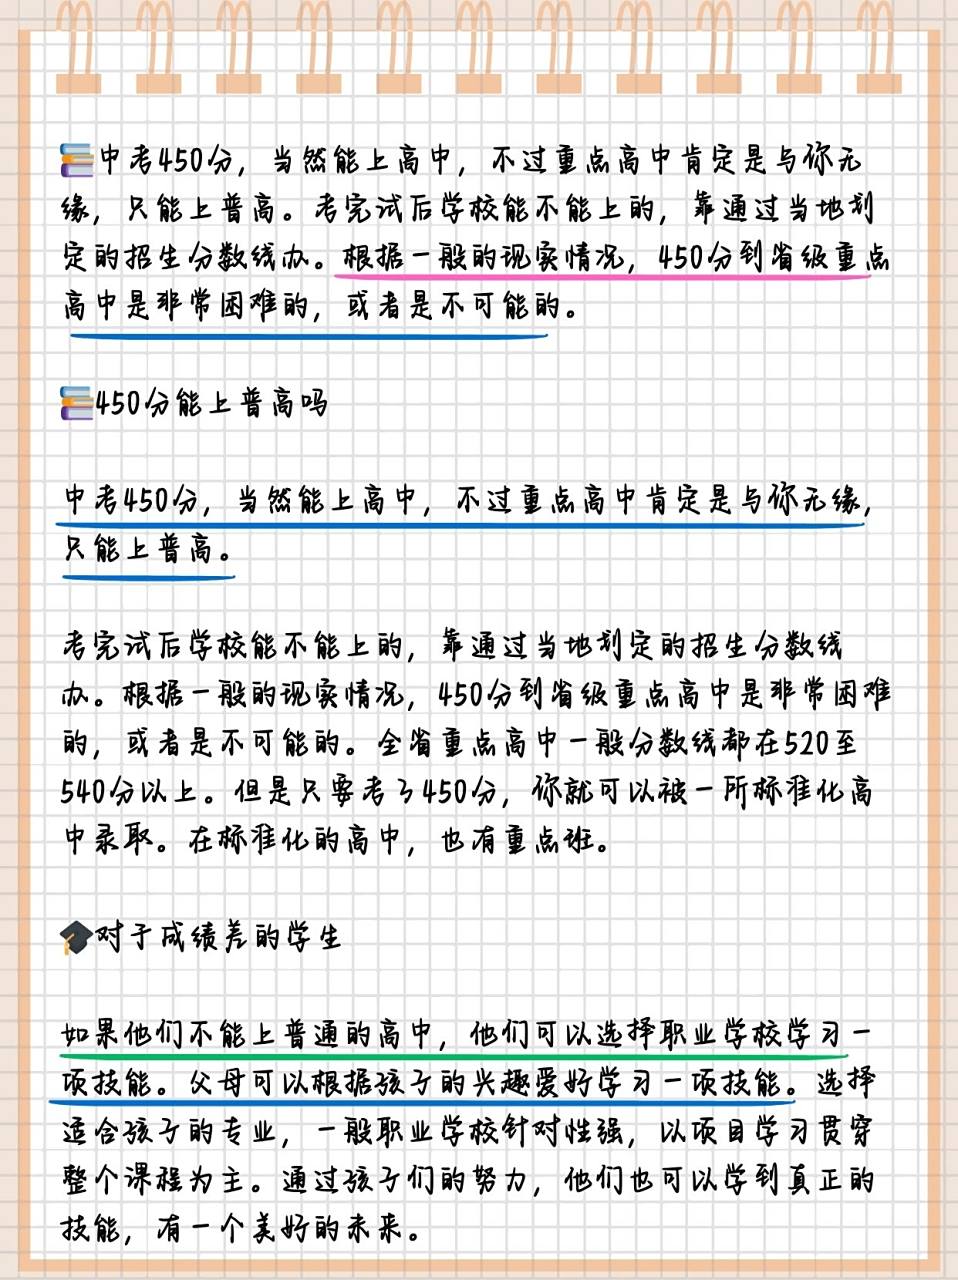 中考450分，当然能上高中，不过重点高中肯定是与你无
缘，只能上普高。考完试后学校能不能上的，靠通过当地划
定的招生分数线办。根据一般的现实情况，450分到省级重点
高中是非常困难的，或者是不可能的。
450分能上普高吗
中考450分，当然能上高中，不过重点高中肯定是与你无缘，
只能上普高。
考完试后学校能不能上的，靠通过当地划定的招生分数线
办。根据一般的现实情况，450分到省级重点高中是非常困难
的，或者是不可能的。全省重点高中一般分数线都在520至
540分以上。但是只要考了450分，你就可以被一所标准化高
中录取。在标准化的高中，也有重点班。
对于成绩差的学生
如果他们不能上普通的高中，他们可以选择职业学校学习一
项技能。父母可以根据孩子的兴趣爱好学习一项技能。选择
适合孩子的专业，一般职业学校针对性强，以项目学习贯穿
整个课程为主。通过孩子们的努力，他们也可以学到真正的
技能，有一个美好的未来。